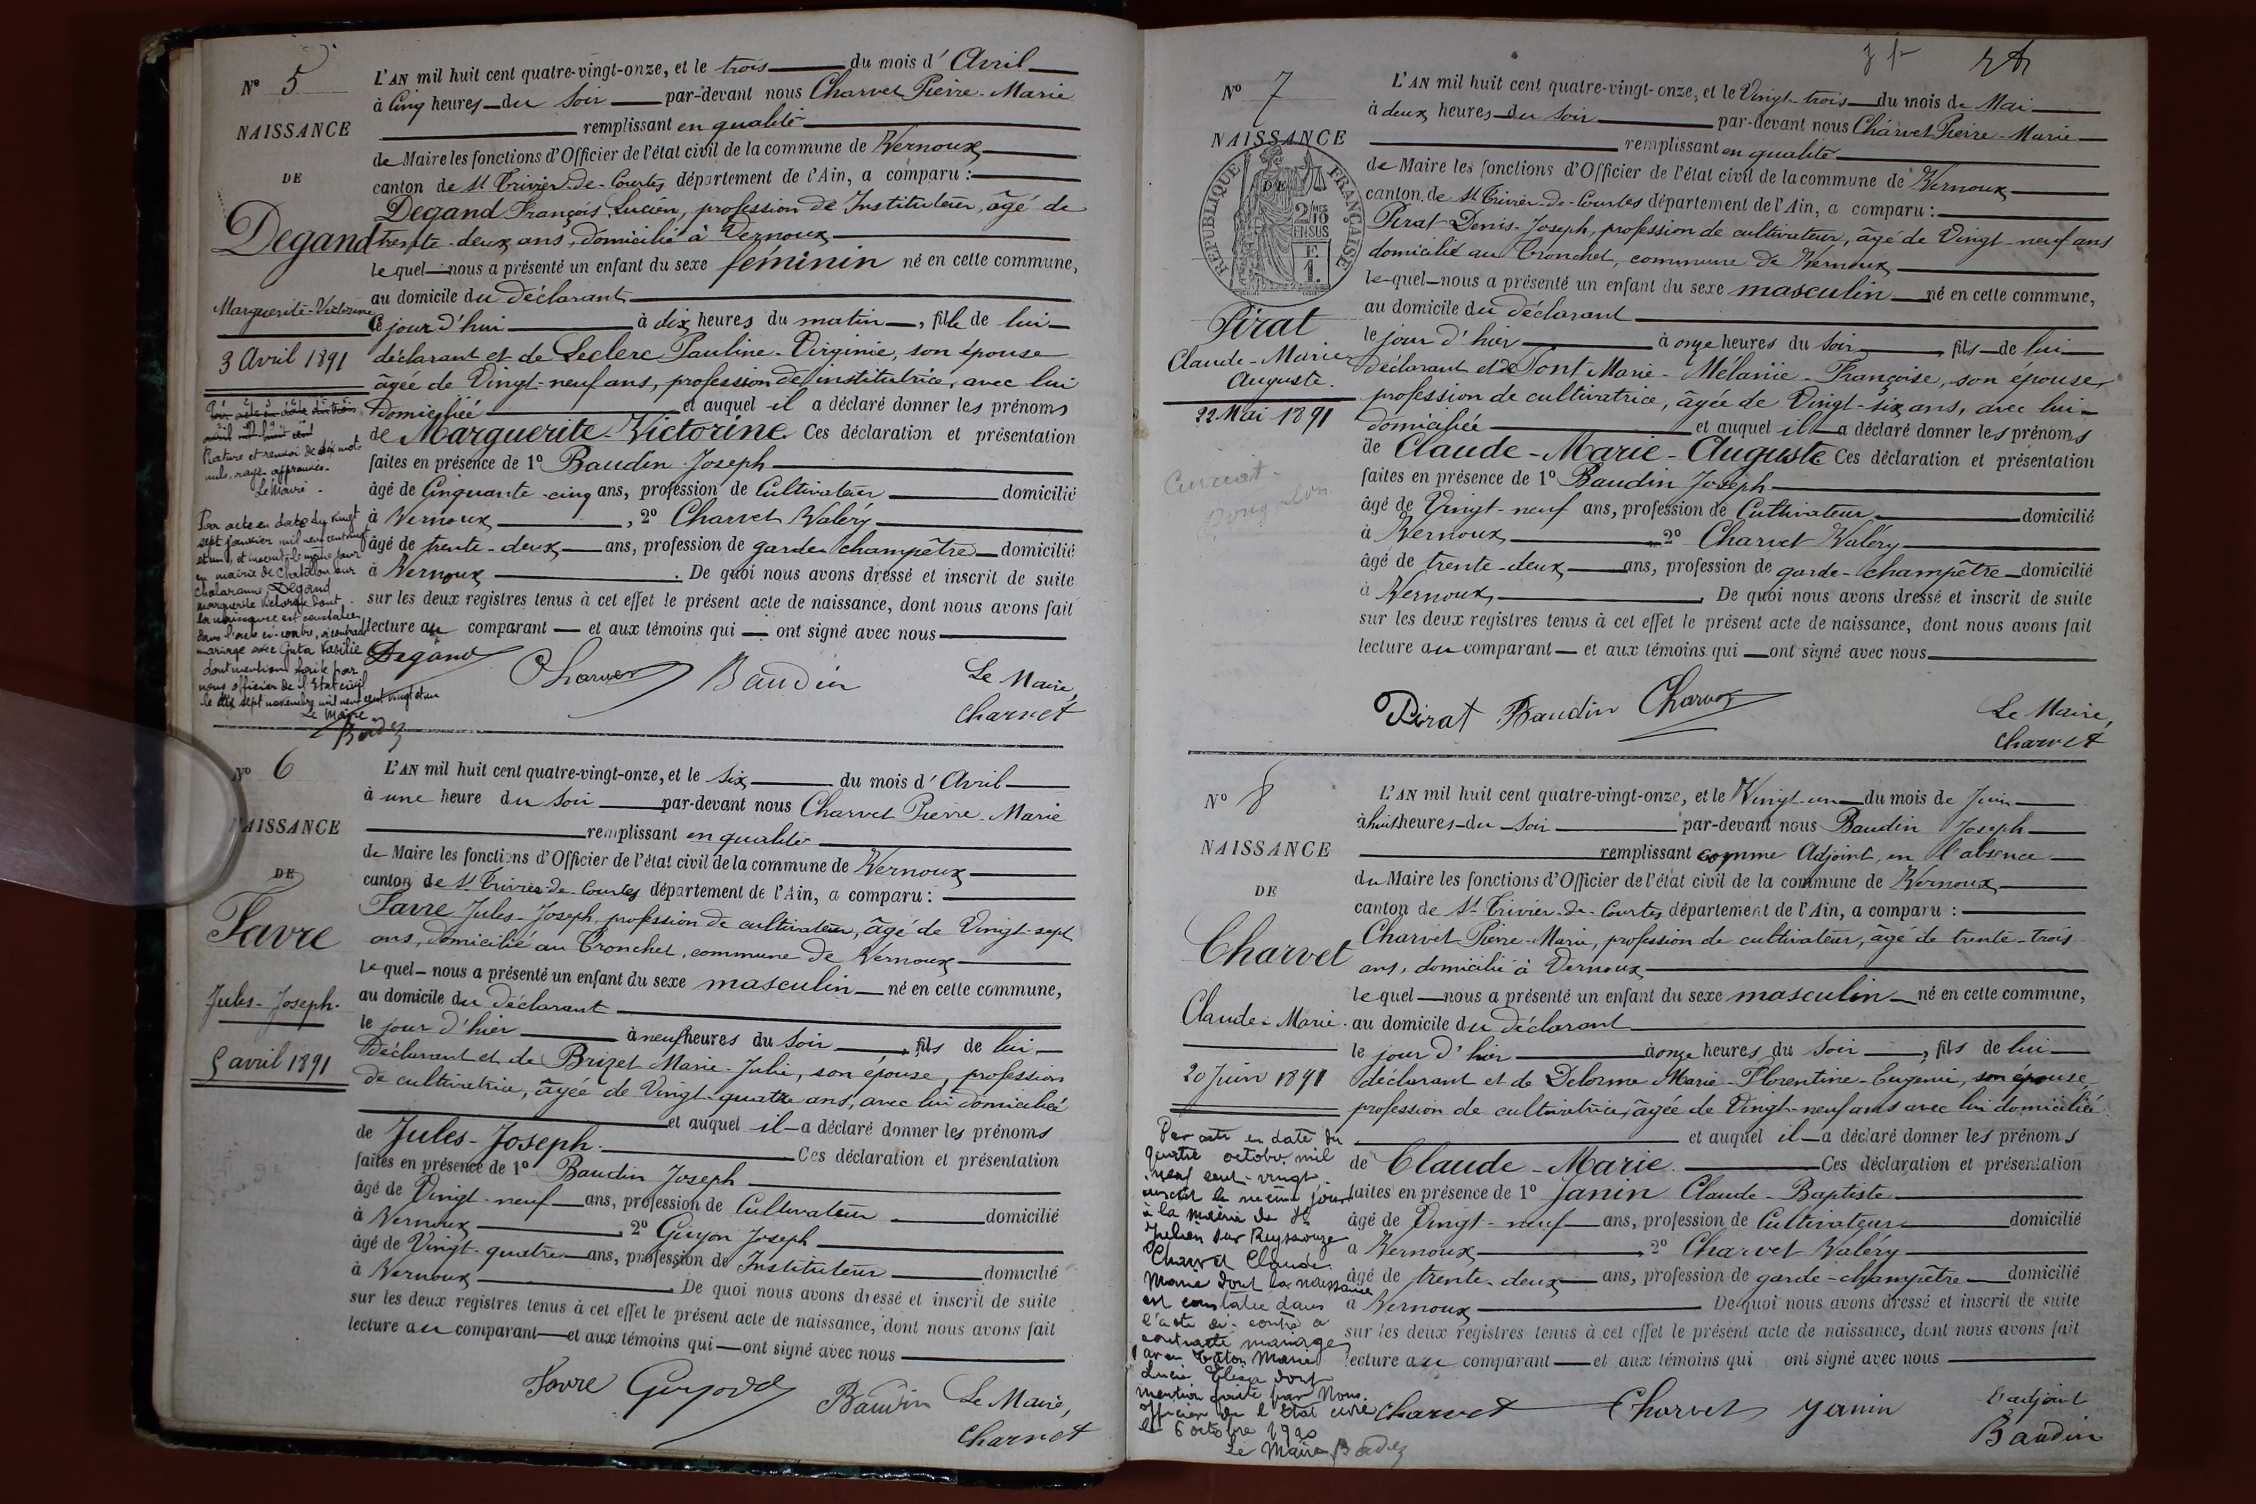 N° 5
NAISSANCE
DE
Degand
Marguerite-Victorine
3 Avril 1891
Rature et renvoi de dix mots
nuls, rayés approuvés.
Le Maire.
Par acte en date du vingt
sept janvier mil neuf cent vingt
et un, et inscrit le même jour
en mairie de Chatillon sur
Chalaronne, Degand
Marguerite Victorine dont
la naissance est constatée
dans l'acte ci-contre, a contracté
mariage avec
dont mention faite par
nous officier de l'Etat civil
le dix sept novembre mil neuf cent vingt et un
Le Maire
L'AN mil huit cent quatre-vingt-onze, et le trois du mois d'Avril
à Cinq heures du Soir par-devant nous Charvet Pierre-Marie
remplissant en qualité
de Maire les fonctions d'Officier de l'état civil de la commune de Vernoux
canton de St Trivier-de-Courtes département de l'Ain, a comparu :
Degand François Lucien, profession de Instituteur, âgé de
trente-deux ans, domicilié à Vernoux
lequel nous a présenté un enfant du sexe féminin né en cette commune,
au domicile du déclarant
Ce jour d'hui à dix heures du matin, fille de lui
déclarant et de Leclerc Pauline-Virginie, son épouse
âgée de Vingt-neuf ans, profession de institutrice, avec lui
domiciliée et auquel il a déclaré donner les prénoms
de Marguerite-Victorine. Ces déclaration et présentation
faites en présence de 1° Baudin Joseph
âgé de Cinquante-cinq ans, profession de Cultivateur domicilié
à Vernoux, 2° Charvet Valéry
âgé de trente-deux ans, profession de garde champêtre domicilié
à Vernoux. De quoi nous avons dressé et inscrit de suite
sur les deux registres tenus à cet effet le présent acte de naissance, dont nous avons fait
lecture au comparant et aux témoins qui ont signé avec nous
Degand Charvet Baudin Le Maire,
Charvet
N° 6
NAISSANCE
DE
Favre
Jules-Joseph.
5 avril 1891
L'AN mil huit cent quatre-vingt-onze, et le six du mois d'Avril
à une heure du Soir par-devant nous Charvet Pierre-Marie
remplissant en qualité
de Maire les fonctions d'Officier de l'état civil de la commune de Vernoux
canton de St Trivier-de-Courtes département de l'Ain, a comparu :
Favre Jules-Joseph, profession de cultivateur, âgé de Vingt-sept
ans, domicilié au Tronchet, commune de Vernoux
lequel nous a présenté un enfant du sexe masculin né en cette commune,
au domicile du déclarant
le jour d'hier à neuf heures du Soir, fils de lui
déclarant et de Brizet Marie-Julie, son épouse, profession
de cultivatrice, âgée de Vingt-quatre ans, avec lui domiciliée
et auquel il a déclaré donner les prénoms
de Jules-Joseph. Ces déclaration et présentation
faites en présence de 1° Baudin Joseph
âgé de Vingt-neuf ans, profession de Cultivateur domicilié
à Vernoux, 2° Guyon Joseph
âgé de Vingt-quatre ans, profession de Instituteur domicilié
à Vernoux. De quoi nous avons dressé et inscrit de suite
sur les deux registres tenus à cet effet le présent acte de naissance, dont nous avons fait
lecture au comparant et aux témoins qui ont signé avec nous
Favre Guyon Baudin Le Maire,
Charvet
N° 7
NAISSANCE
DE
RÉPUBLIQUE FRANÇAISE
2/10 EN SUS
E.
1.
Pirat
Claude-Marie
Auguste.
22 Mai 1891
L'AN mil huit cent quatre-vingt-onze, et le Vingt-trois du mois de Mai
à deux heures du soir par-devant nous Charvet Pierre-Marie
remplissant en qualité
de Maire les fonctions d'Officier de l'état civil de la commune de Vernoux
canton de St Trivier-de-Courtes département de l'Ain, a comparu :
Pirat Denis-Joseph, profession de cultivateur, âgé de Vingt-neuf ans
domicilié au Tronchet, commune de Vernoux
lequel nous a présenté un enfant du sexe masculin né en cette commune,
au domicile du déclarant
le jour d'hier à onze heures du Soir, fils de lui
déclarant et de Pont Marie-Mélanie-Françoise, son épouse,
profession de cultivatrice, âgée de Vingt-six ans, avec lui
domiciliée et auquel il a déclaré donner les prénoms
de Claude-Marie-Auguste Ces déclaration et présentation
faites en présence de 1° Baudin Joseph
âgé de Vingt-neuf ans, profession de Cultivateur domicilié
à Vernoux, 2° Charvet Valéry
âgé de trente-deux ans, profession de garde-champêtre domicilié
à Vernoux. De quoi nous avons dressé et inscrit de suite
sur les deux registres tenus à cet effet le présent acte de naissance, dont nous avons fait
lecture au comparant et aux témoins qui ont signé avec nous
Pirat Baudin Charvet Le Maire,
Charvet
N° 8
NAISSANCE
DE
Charvet
Claude-Marie.
20 Juin 1891
Par acte en date du
quatre octobre mil
neuf cent vingt
inscrit le même jour
à la mairie de St
Julien sur Reyssouze
Charvet Claude
Marie dont la naissance
est constatée dans
l'acte ci-contre a
contracté mariage
avec Marie
Lucie dont
mention faite par Nous
officier de l'Etat civil
le 6 octobre 1920
Le Maire
L'AN mil huit cent quatre-vingt-onze, et le Vingt-un du mois de Juin
à huit heures du Soir par-devant nous Baudin Joseph
remplissant comme Adjoint, en l'absence
du Maire les fonctions d'Officier de l'état civil de la commune de Vernoux
canton de St Trivier-de-Courtes département de l'Ain, a comparu :
Charvet Pierre-Marie, profession de cultivateur, âgé de trente-trois
ans, domicilié à Vernoux
lequel nous a présenté un enfant du sexe masculin né en cette commune,
au domicile du déclarant
le jour d'hier à onze heures du Soir, fils de lui
déclarant et de Delorme Marie-Florentine-Eugénie, son épouse
profession de cultivatrice, âgée de Vingt-neuf ans avec lui domiciliée
et auquel il a déclaré donner les prénoms
de Claude-Marie. Ces déclaration et présentation
faites en présence de 1° Janin Claude-Baptiste
âgé de Vingt-neuf ans, profession de Cultivateur domicilié
à Vernoux, 2° Charvet Valéry
âgé de trente-deux ans, profession de garde-champêtre domicilié
à Vernoux De quoi nous avons dressé et inscrit de suite
sur les deux registres tenus à cet effet le présent acte de naissance, dont nous avons fait
lecture au comparant et aux témoins qui ont signé avec nous
Charvet Charvet Janin L'adjoint
Baudin